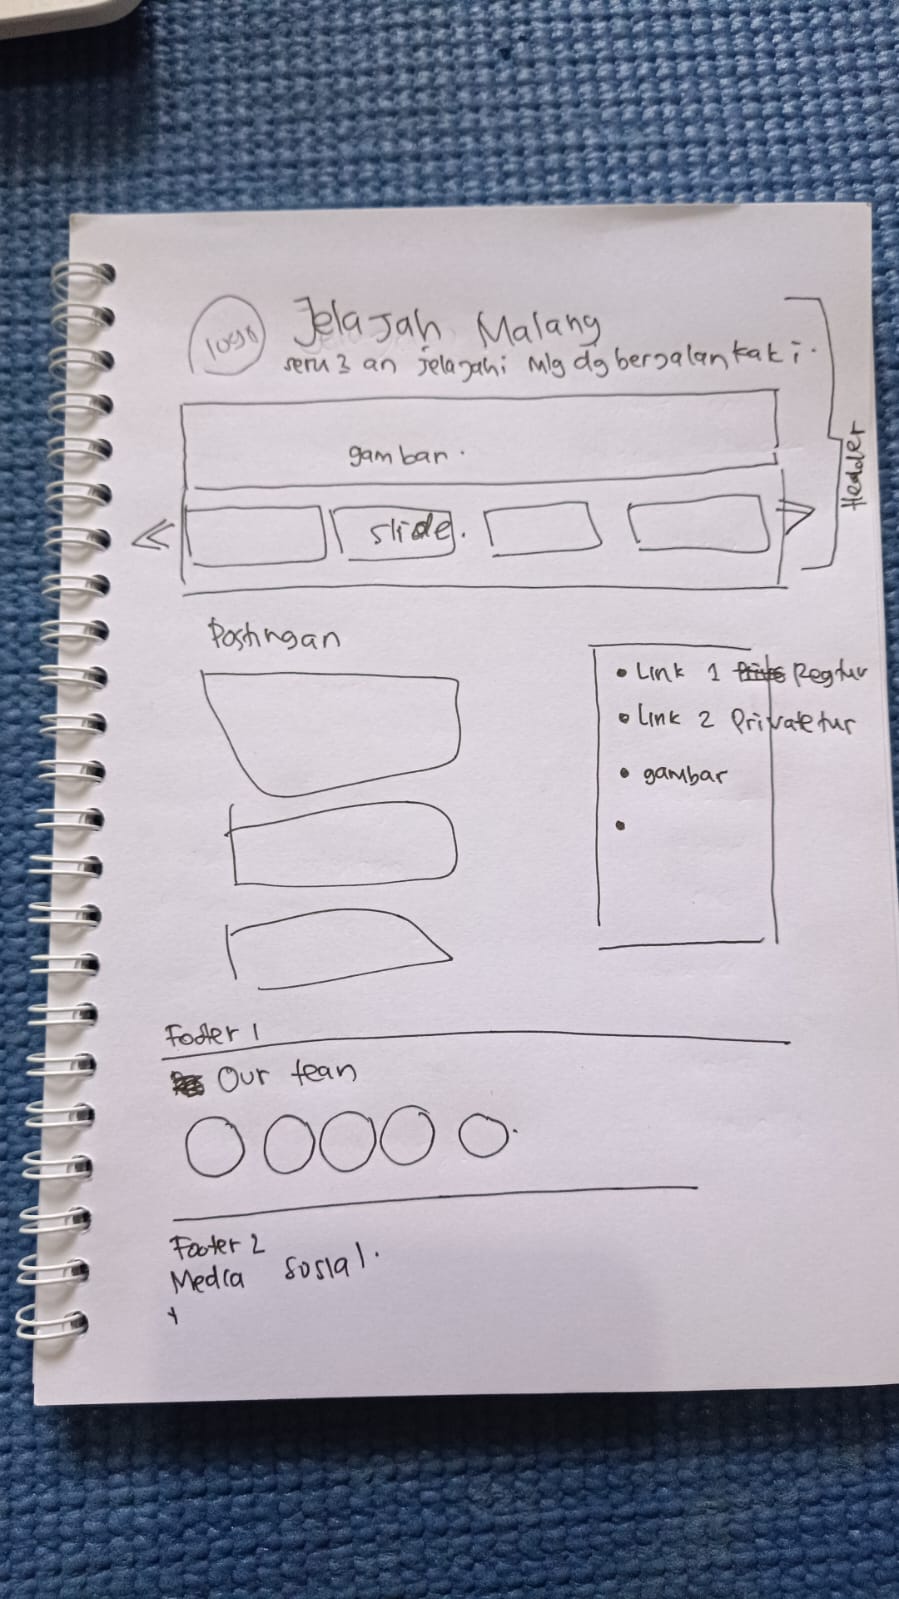 logo
Jelajah Malang
seru 3 an jelajahi Mlg dg berjalan kaki.
Hedder
gambar.
slide.
Postingan
• Link 1 Regtur
• Link 2 Privatetur
• gambar
•
Footer 1
Our tean
Footer 2
Media Sosial.